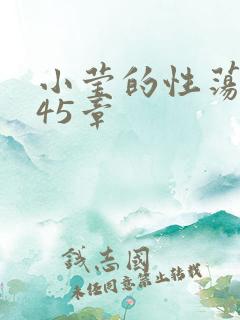 小莹的性荡
45章
钱志國
未经同意禁止转载